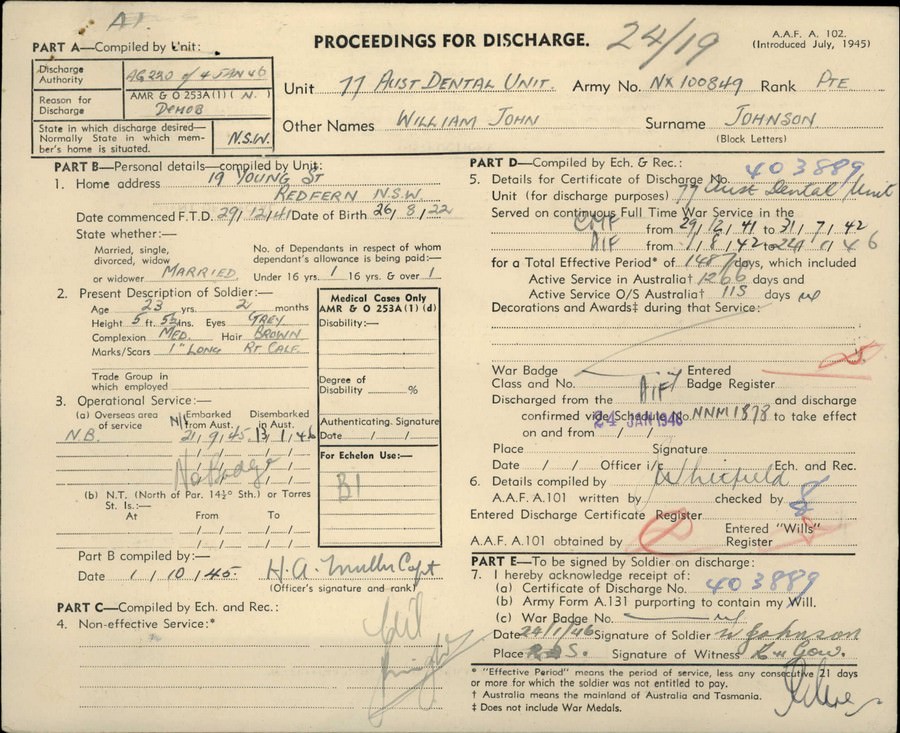 A1.
PROCEEDINGS FOR DISCHARGE.
24/19
A.A.F. A. 102.
(Introduced July, 1945)
PART A—Compiled by Unit:
Discharge Authority AG 230 of 4 JAN 46
Reason for Discharge AMR & O 253A(1) (N.) DEMOB
State in which discharge desired—Normally State in which member's home is situated. N.S.W.
Unit 77 AUST DENTAL UNIT. Army No. NX 100849 Rank PTE
Other Names WILLIAM JOHN Surname JOHNSON
(Block Letters)
PART B—Personal details—compiled by Unit:
1. Home address 19 YOUNG ST
REDFERN N.S.W.
Date commenced F.T.D. 29/12/41 Date of Birth 26/8/22
State whether:—
Married, single, divorced, widow or widower MARRIED.
No. of Dependants in respect of whom dependant's allowance is being paid:—
Under 16 yrs. 1 16 yrs. & over 1
2. Present Description of Soldier:—
Age 23 yrs. 2 months
Height 5 ft. 5½ ins. Eyes GREY.
Complexion MED. Hair BROWN
Marks/Scars 1" LONG RT CALF.
Trade Group in which employed
Medical Cases Only
AMR & O 253A(1) (d)
Disability:—
Degree of Disability %
Authenticating. Signature
Date / /
For Echelon Use:—
B1
3. Operational Service:—
(a) Overseas area of service Embarked from Aust. Disembarked in Aust.
N.B. 21/9/45 13/1/46
No Badge
(b) N.T. (North of Par. 14½° Sth.) or Torres St. Is.:—
At From To
Part B compiled by:—
Date 1/10/45. H.A. Muller Capt
(Officer's signature and rank)
PART C—Compiled by Ech. and Rec.:
4. Non-effective Service:*
PART D—Compiled by Ech. & Rec.:
5. Details for Certificate of Discharge No. 403889
Unit (for discharge purposes) 77 Aust Dental Unit
Served on continuous Full Time War Service in the
CMF from 29/12/41 to 31/7/42
AIF from 1/8/42 to 24/1/46
for a Total Effective Period* of 1487 days, which included
Active Service in Australia† 1266 days and
Active Service O/S Australia† 115 days
Decorations and Awards‡ during that Service:
War Badge Class and No. Entered Badge Register
Discharged from the AIF and discharge
confirmed vide Schedule No. NNM1878 to take effect
on and from / /
24 JAN 1946
Place Signature
Date / / Officer i/c Ech. and Rec.
6. Details compiled by Whitfield
A.A.F. A.101 written by checked by
Entered Discharge Certificate Register
A.A.F. A.101 obtained by Entered "Wills" Register
PART E—To be signed by Soldier on discharge:
7. I hereby acknowledge receipt of:
(a) Certificate of Discharge No. 403889
(b) Army Form A.131 purporting to contain my Will.
(c) War Badge No.
Date 24/1/46 Signature of Soldier W Johnson
Place S. Signature of Witness Gow.
* "Effective Period" means the period of service, less any consecutive 21 days or more for which the soldier was not entitled to pay.
† Australia means the mainland of Australia and Tasmania.
‡ Does not include War Medals.